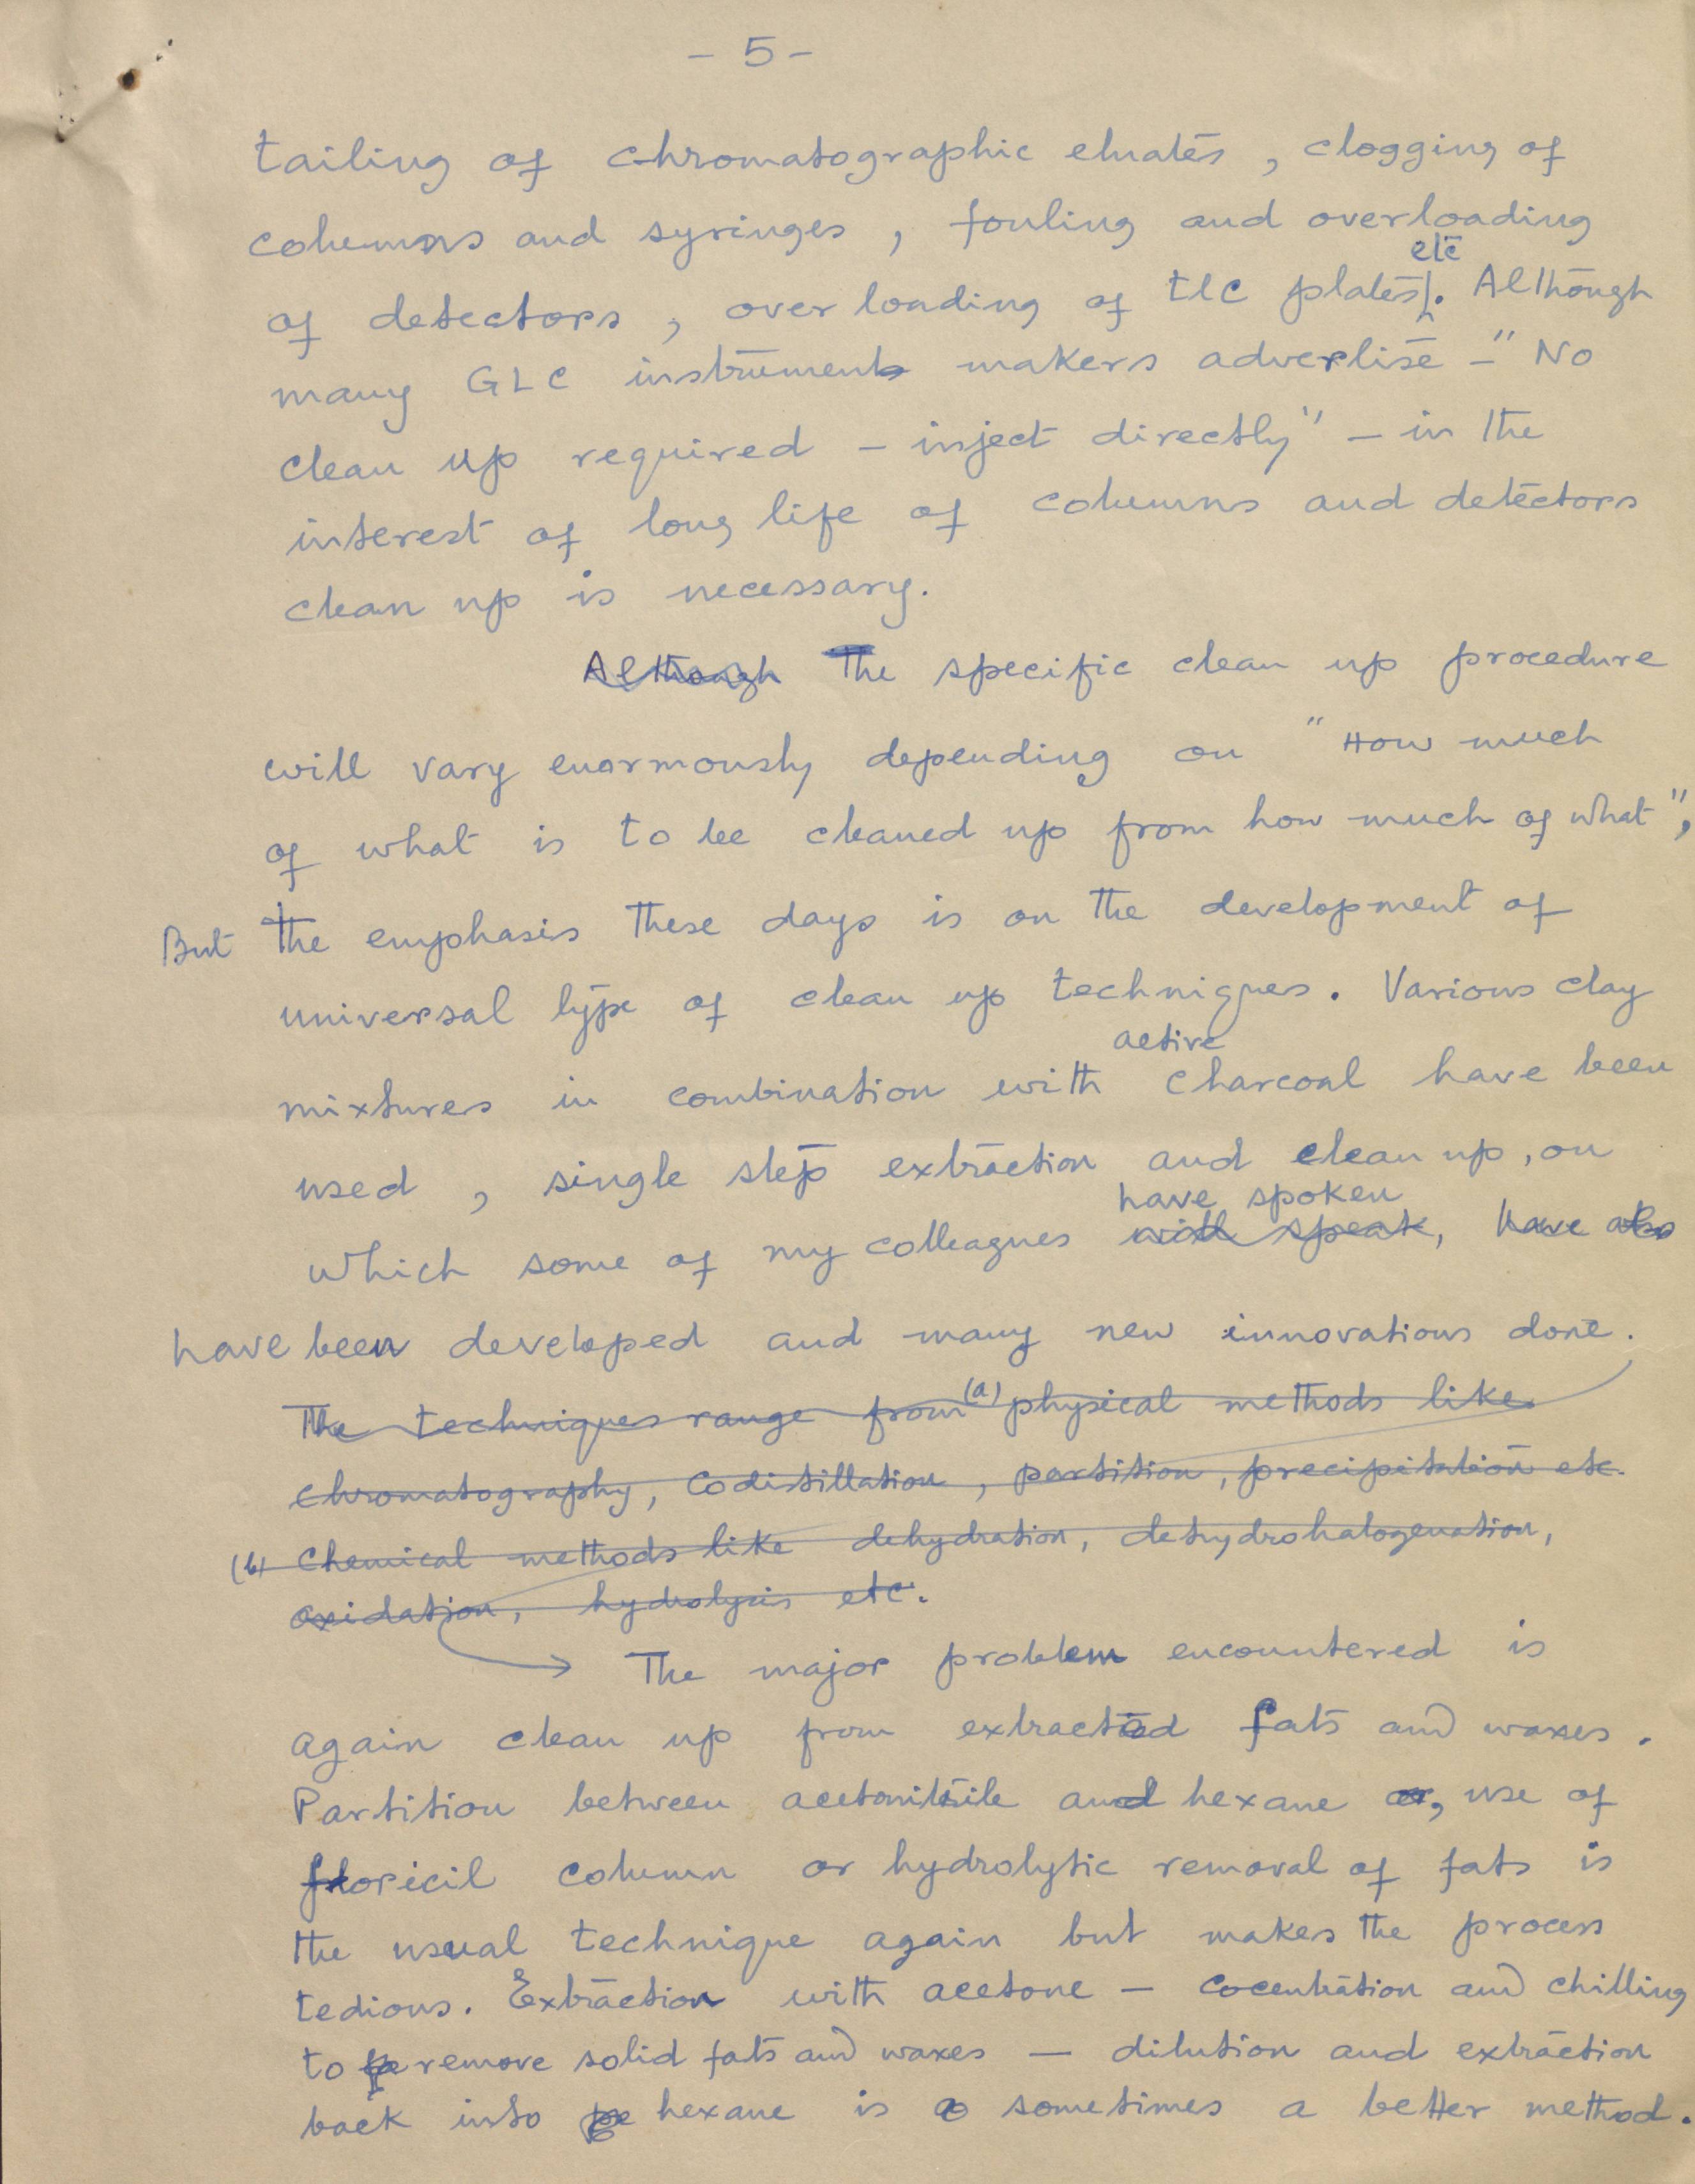 - 5 -
tailing of chromatographic eluates , clogging of
columns and syringes , fouling and overloading
of detectors , over loading of tlc plates etc. Although
many GLC instruments makers advertise - " No
clean up required - inject directly " - in the
interest of long life of columns and detectors
clean up is necessary.
Although The specific clean up procedure
will vary enormously depending on " How much
of what is to be cleaned up from how much of what ",
But the emphasis these days is on the development of
universal type of clean up techniques . Various clay
active
mixtures in combination with charcoal have been
used , single step extraction and clean up , on
have spoken
which some of my colleagues will speak , have also
have been developed and many new innovations done .
The techniques range from (a) physical methods like
chromatography , Codistillation , partition , precipitation etc.
(b) Chemical methods like dehydration , dehydrohalogenation ,
oxidation , hydrolysis etc .
→ The major problem encountered is
again clean up from extracted fats and waxes .
Partition between acetonitrile and hexane or, use of
floricil column or hydrolytic removal of fats is
the usual technique again but makes the process
tedious . Extraction with acetone - Cocentration and chilling
to remove solid fats and waxes - dilution and extraction
back into hexane is sometimes a better method .